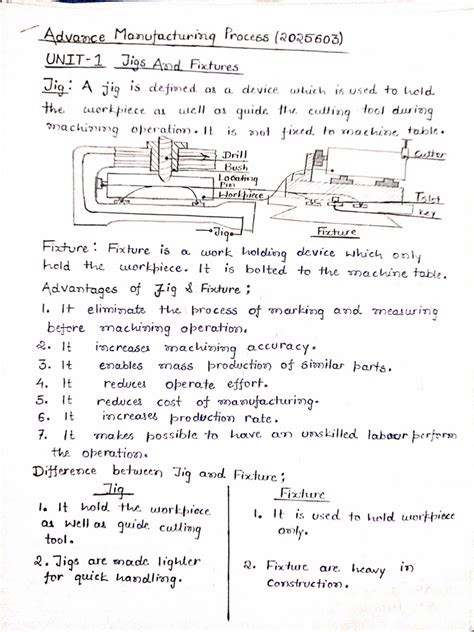 Advance Manufacturing Process (2025603)
UNIT-1 Jigs And Fixtures
Jig: A jig is defined as a device which is used to hold
the workpiece as well as guide the cutting tool during
machining operation. It is not fixed to machine table.
Drill
Bush
Locating
Pin
Workpiece
Jig
Cutter
Tslot
key
Fixture
Fixture: Fixture is a work holding device which only
hold the workpiece. It is bolted to the machine table.
Advantages of Jig & Fixture;
1. It eliminate the process of marking and measuring
before machining operation.
2. It increases machining accuracy.
3. It enables mass production of similar parts.
4. It reduces operate effort.
5. It reduces cost of manufacturing.
6. It increases production rate.
7. It makes possible to have an unskilled labour perform
the operation.
Difference between Jig and Fixture;
Jig
1. It hold the workpiece
as well as guide cutting
tool.
2. Jigs are made lighter
for quick handling.
Fixture
1. It is used to hold workpiece
only.
2. Fixture are heavy in
Construction.